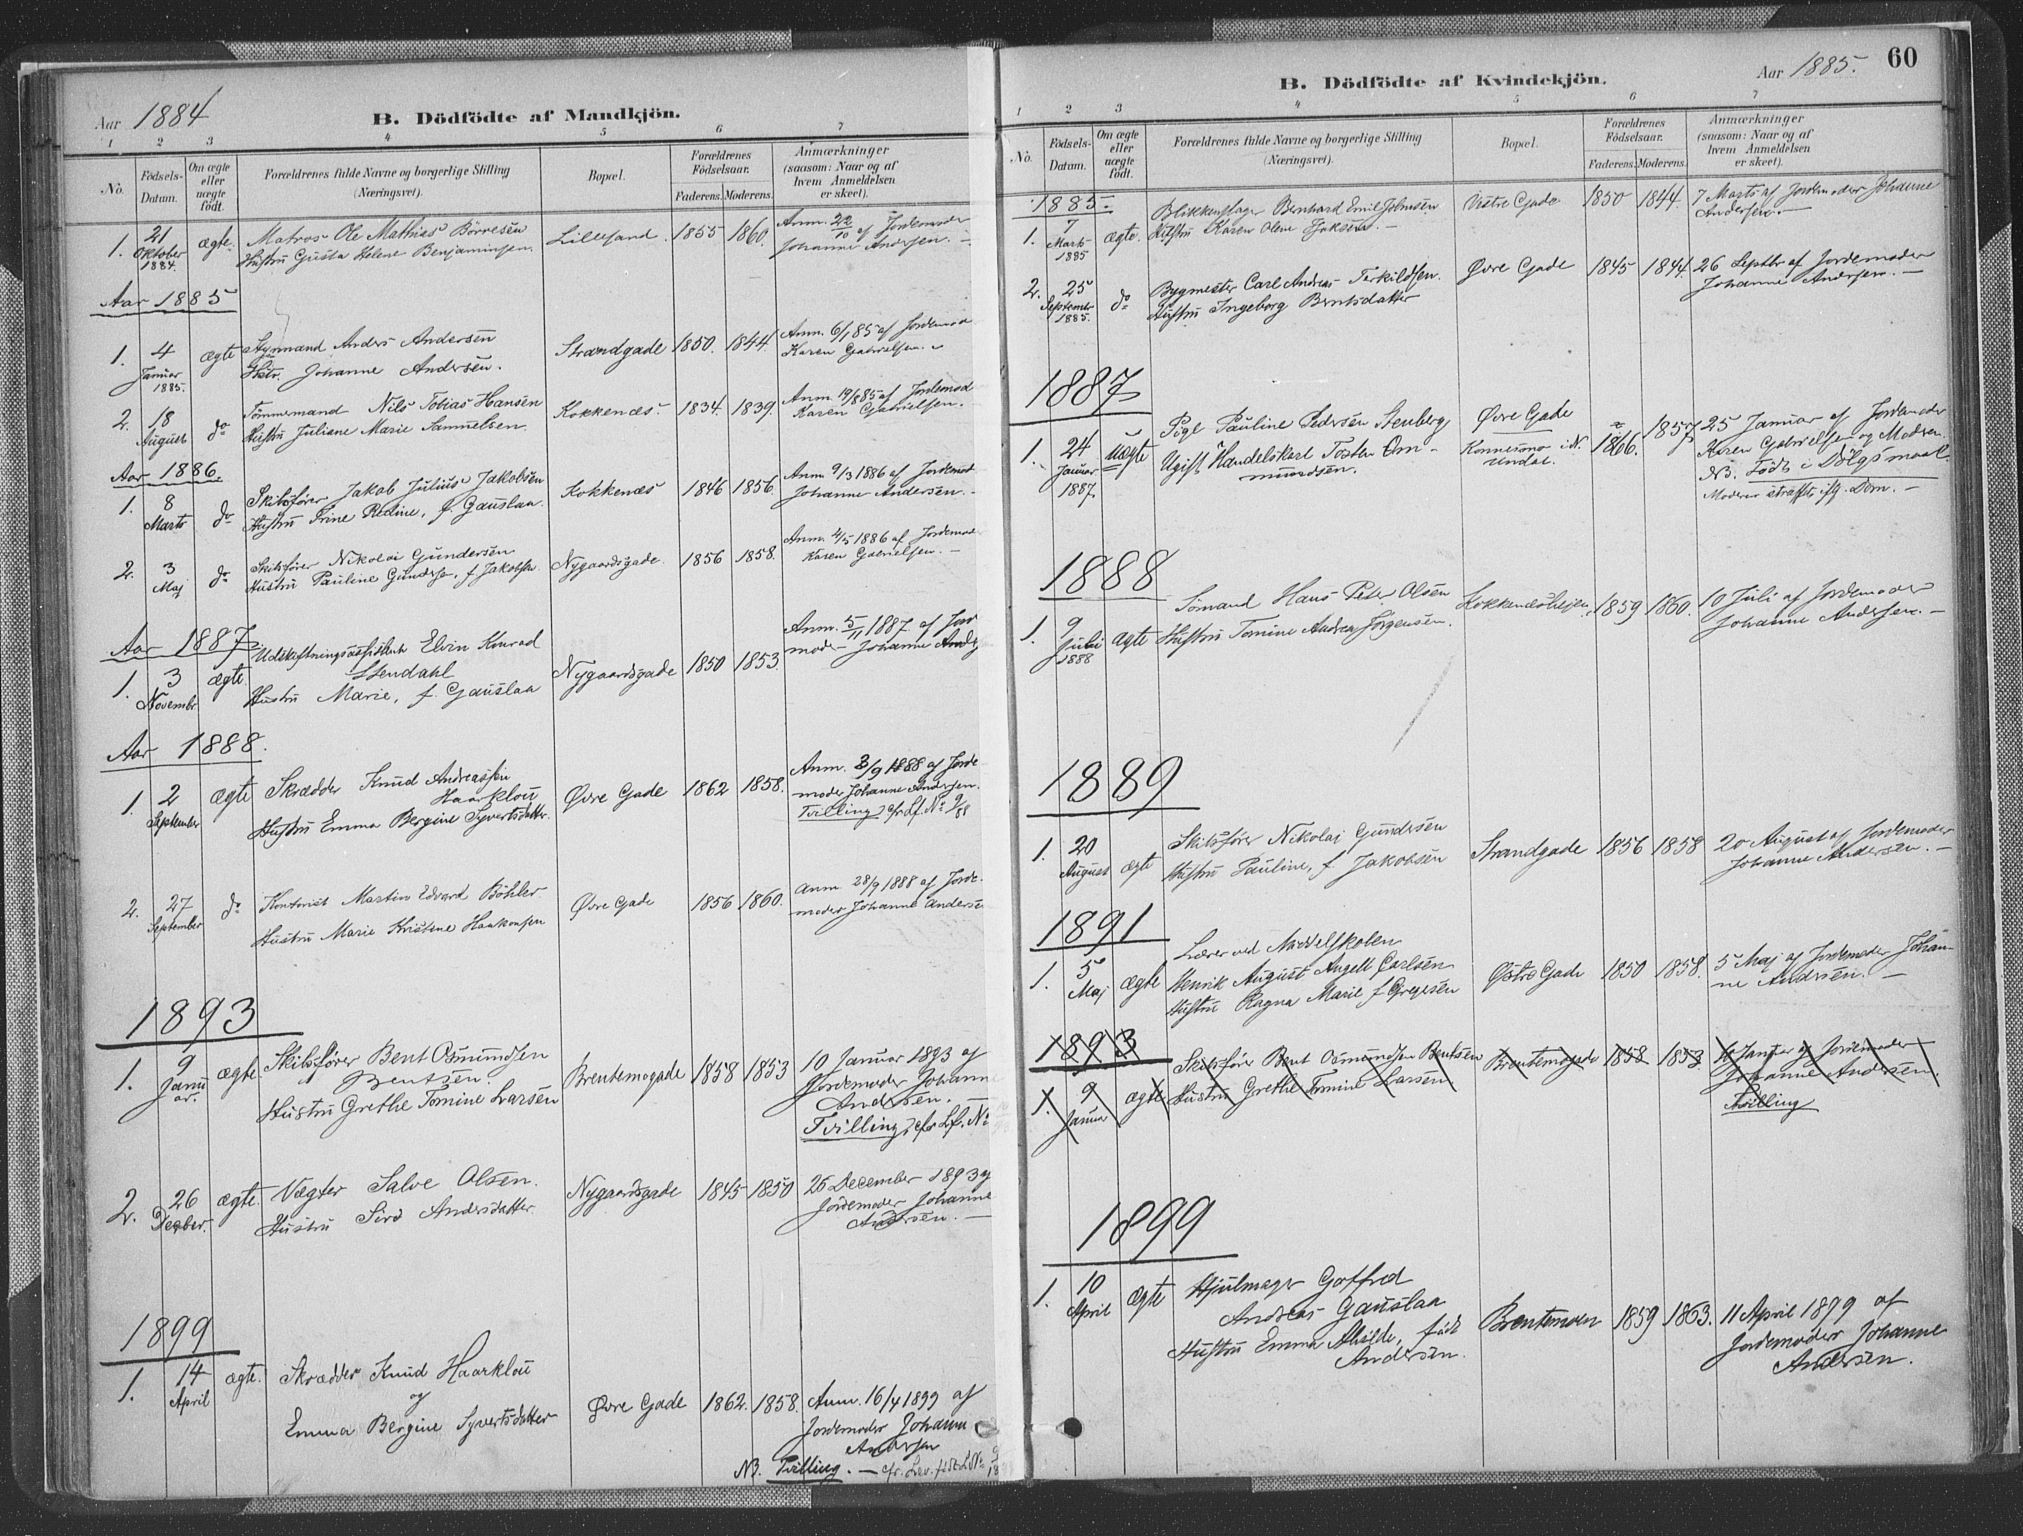 Aar 1884
B. Dödfödte af Mandkjön.
1 2 3 4 5 6 7
No.
Födsels-
Datum.
Om ægte
eller
uægte
födt.
Forældrenes fulde Navne og borgerlige Stilling
(Næringsvei).
Bopæl.
Forældrenes
Födselsaar.
Faderens. Moderens.
Anmærkninger
(saasom: Naar og af
hvem Anmeldelsen
er skeet).
1. 21 Oktober 1884. ægte. Matros Ole Mathias Børresen
Hustru Gusta Helene Benjaminsen.
Lillesand. 1855 1860.
Anm. 22/10 af Jordemoder
Johanne Andersen. —
Aar 1885
1. 4 Januar 1885. ægte Styrmand Anders Andersen
Hstr. Johanne Andersen.
Strandgade 1850. 1844.
Anm. 6/1 85 af Jordemod
Karen Gabrielsen.
2. 18 August do Tömmermand Nils Tobias Hansen
Hustru Juliane Marie Samuelsen.
Kokkenæs. 1834. 1839.
Anm. 19/8 85 af Jordemod
Karen Gabrielsen.
Aar 1886.
1. 8 Marts do Skibsfører Jakob Julius Jakobsen
Hustru Trine Redine, f. Gauslaa.
Kokkenæs 1846 1856
Anm. 9/3 1886 af Jordemod
Johanne Andersen. —
2. 3 Maj do Skibsfører Nikolai Gundersen
Hustru Pauline Gunders, f. Jakobsen
Nygaardsgade. 1856 1858.
Anm. 4/5 1886 af Jordemod
Karen Gabrielsen. —
Aar 1887
1. 3 Novembr ægte Udskiftningsassistent Elvin Konrad
Stendahl
Hustru Marie, f. Gauslaa
Nygaardsgade 1850 1853.
Anm. 5/11 1887 af Jor
moder Johanne Ands
Aar 1888.
1. 2 September ægte Skrædder Knud Andreassen
Haarklou
Hustru Emma Bergine Syvertsdatter.
Øvre Gade 1862 1858.
Anm. 3/9 1888 af Jorde-
moder Johanne Andersen.
Tvilling, cfr Lf. No 9/88
2. 27 September do Kontorist Martin Edvard Böhler
Hustru Marie Kristine Haakonsen
Øvre Gade 1856 1860.
Anm 28/9 1888 af Jorde-
moder Johanne Anderse
1893
1. 9 Janu ar. ægte. Skibsfører Bent Osmundsen
Bentsen.
Hustru Grethe Tomine Larsen
Brentemogade 1858 1853
10 Januar 1893 af
Jordemoder Johanne
Andersen.
Tvilling, cfr Lf. No
2. 26 Decber. ægte. Vægter Salve Olsen.
Hustru Siri Andersdatter
Nygaardsgade 1845 1850
26 December 1893 af
Jordemoder Johanne
Andersen. —
1899
1. 14 April ægte. Skrædder Knud Haarklou
og
Emma Bergine Syvertsdatter
Øvre Gade 1862. 1858.
Anm. 16/4 1899 af
Jordemoder Johann
Andersen
NB. Tvilling. — cfr. Lev. födte No
60
Aar 1885.
B. Dödfödte af Kvindekjön.
1 2 3 4 5 6 7
No.
Födsels-
Datum.
Om ægte
eller
uægte
födt.
Forældrenes fulde Navne og borgerlige Stilling
(Næringsvei).
Bopæl.
Forældrenes
Födselsaar.
Faderens. Moderens.
Anmærkninger
(saasom: Naar og af
hvem Anmeldelsen
er skeet).
1885.
1. 7 Marts 1885 ægte. Blikkenslager Bernhard Emil Johnsen
Hustru Karen Olene Jaksen. —
Vestre Gade 1850 1844.
7 Marts af Jordemoder Johanne
Andersen. —
2. 25 September 1885. do Bygmester Carl Andreas Terkildsen.
Hustru Ingeborg Berntsdatter
Øvre Gade 1845 1844.
26 Septbr af Jordemoder
Johanne Andersen. —
1887
1. 24 Januar 1887 uægte Pige Pauline Pedersen Stenberg
Ugift Handelskarl Tosten Om-
mundsen.
Øvre Gade
Konnesmo i N.
Undal.
1866. 1857
25 Januar af Jordemoder
Karen Gabrielsen og Moderen.
NB. Födt i Dölgsmaal
Moderen straffet iflg. Dom. —
1888
1. 9 Juli 1888 ægte Sömand Hans Peter Olsen
Hustru Tomine Andrea Jörgensen.
Kokkenæsheien 1859 1860.
10 Juli af Jordemoder
Johanne Andersen. —
1889
1. 20 August ægte Skibsfører Nikolai Gundersen
Hustru Pauline, f. Jakobsen
Strandgade 1856 1858
20 August af Jordemoder
Johanne Andersen. —
1891
1. 5 Maj ægte Lærer ved Middelskolen
Henrik August Angell Carlsen
Hustru Ragna Marie f Gregesen
Østre Gade 1850 1858.
5 Maj af Jordemoder Johan-
ne Andersen. —
1893
1. 9 Januar ægte Skibsfører Bent Osmundsen Bentsen
Hustru Grethe Tomine Larsen
Brentemogade 1858 1853.
10 Januar af Jordemoder
Johanne Andersen.
Tvilling
1899
1. 10 April ægte Hjulmager Gotfred
Andreas Gauslaa
Hustru Emma Alvilde, födt
Andersen.
Brentemoen 1859 1863.
11 April 1899 af
Jordemoder Johanne
Andersen.